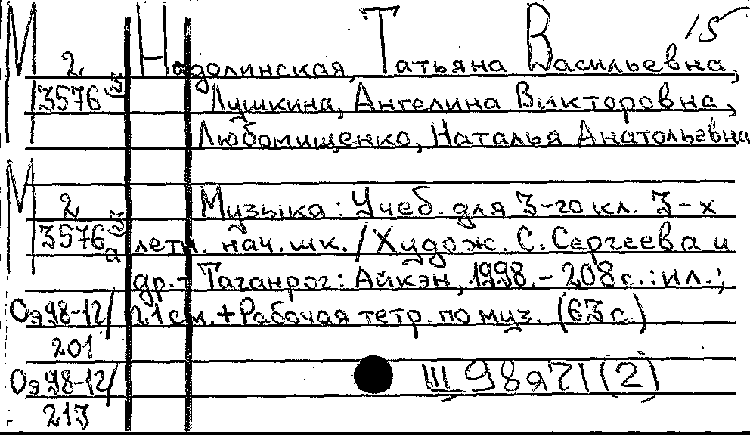 М Надолинская, Татьяна Васильевна, 15
2
3576 Лушкина, Ангелина Викторовна,
Любомищенко, Наталья Анатольевна
М 2 Музыка : Учеб. для 3-го кл. 3-х
3576 летн. нач. шк. / Худож. С. Сергеева и
др. - Таганрог : Айкэн, 1998. - 208 с. : ил. ;
Оэ98-12/ 21 см. + Рабочая тетр. по муз. (63 с.)
201
Оэ98-12/ Щ 98я71(2)
213